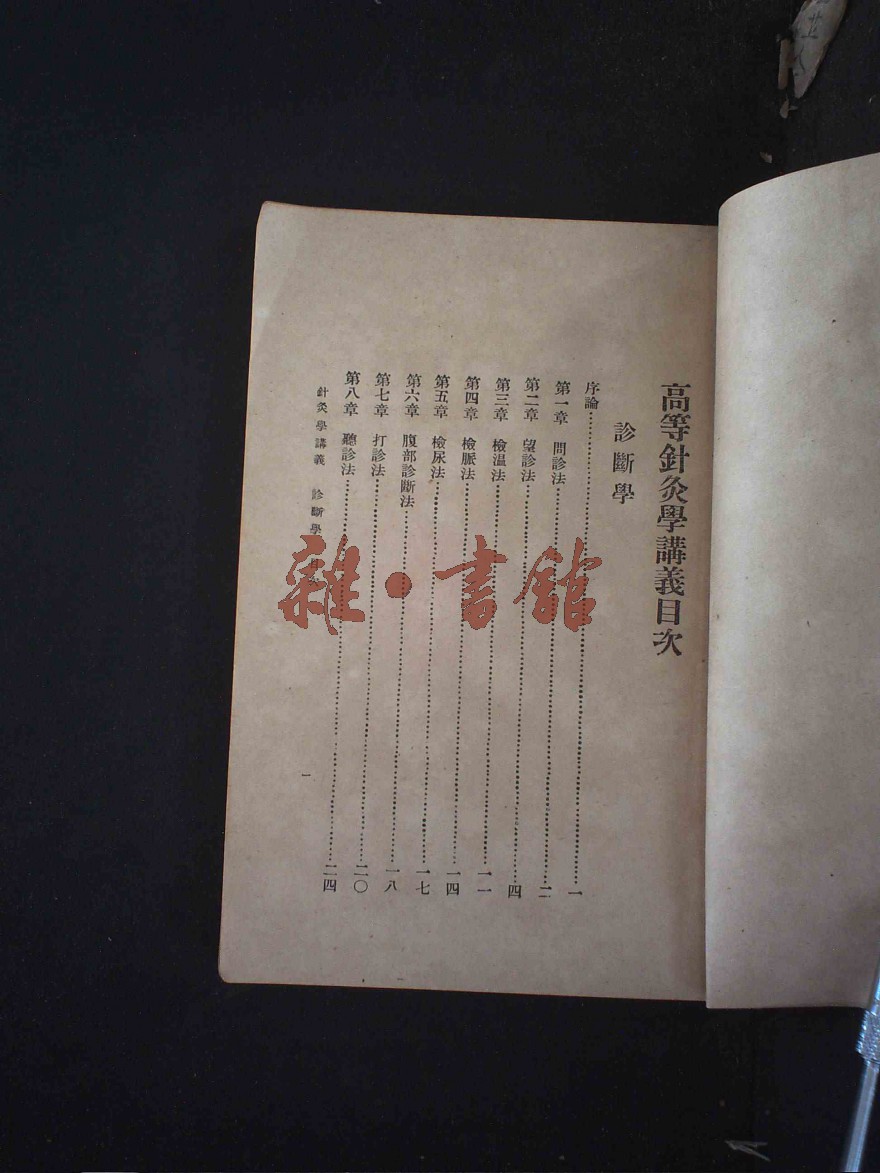 高等針灸學講義目次
診斷學
序論……一
第一章　問診法……二
第二章　望診法……四
第三章　檢溫法……一一
第四章　檢脈法……一四
第五章　檢尿法……一七
第六章　腹部診斷法……一八
第七章　打診法……二〇
第八章　聽診法……二四
針灸學講義　診斷學
一
雜·書館